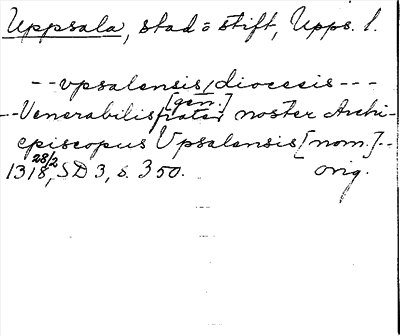 Uppsala, stad o stift, Upps. l.
-- vpsalensis / diocesis ---
[gen.]
-- Venerabilis frater noster Archi-
episcopus Vpsalensis [nom.] --
1318 28/2, SD 3, s. 350. orig.